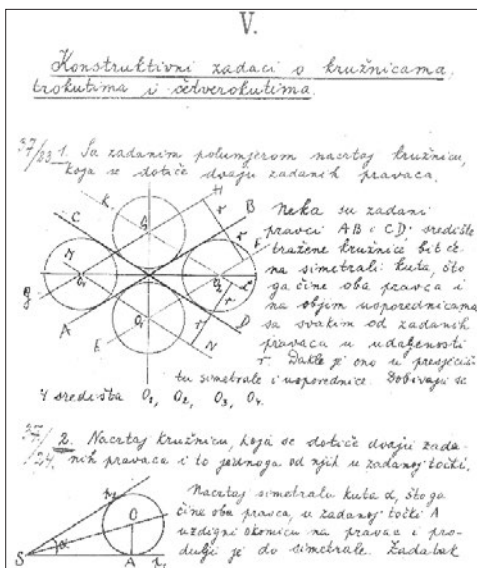 V.
Konstruktivni zadaci o kružnicama,
trokutima i četverokutima.
37/23 1. Sa zadanim polumjerom nacrtaj kružnicu,
koja se dotiče dvaju zadanih pravaca.
Neka su zadani
pravci AB i CD; središte
tražene kružnice bit će
na simetrali kuta, što
ga čine oba pravca i
na objim usporednicama
sa svakim od zadanih
pravaca u udaljenosti
r. Dakle je ono u presjeciš-
tu simetrale i usporednice. Dobivaju se
4 središta O₁, O₂, O₃, O₄.
K
H
C
B
F
r
r
M
L
A
D
E
N
r
r
37/24. 2. Nacrtaj kružnicu, koja se dotiče dvaju zada-
nih pravaca i to jednoga od njih u zadanoj točki.
Nacrtaj simetralu kuta α, što ga
čine oba pravca, u zadanoj točki A
uzdigni okomicu na pravac i pro-
dulji je do simetrale. Zadatak
S
α
O
A
p₂
p₁